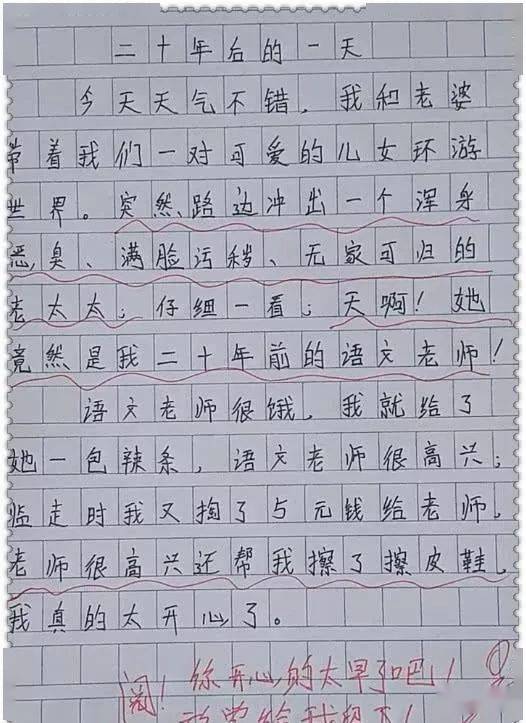 二十年后的一天
今天天气不错，我和老婆
带着我们一对可爱的儿女环游
世界。突然路边冲出一个浑身
恶臭、满脸污秽、无家可归的
老太太；仔细一看；天啊！她
竟然是我二十年前的语文老师！
语文老师很饿，我就给了
她一包辣条，语文老师很高兴；
临走时我又掏了5元钱给老师。
老师很高兴还帮我擦了擦皮鞋。
我真的太开心了。
阅！你开心的太早了吧！